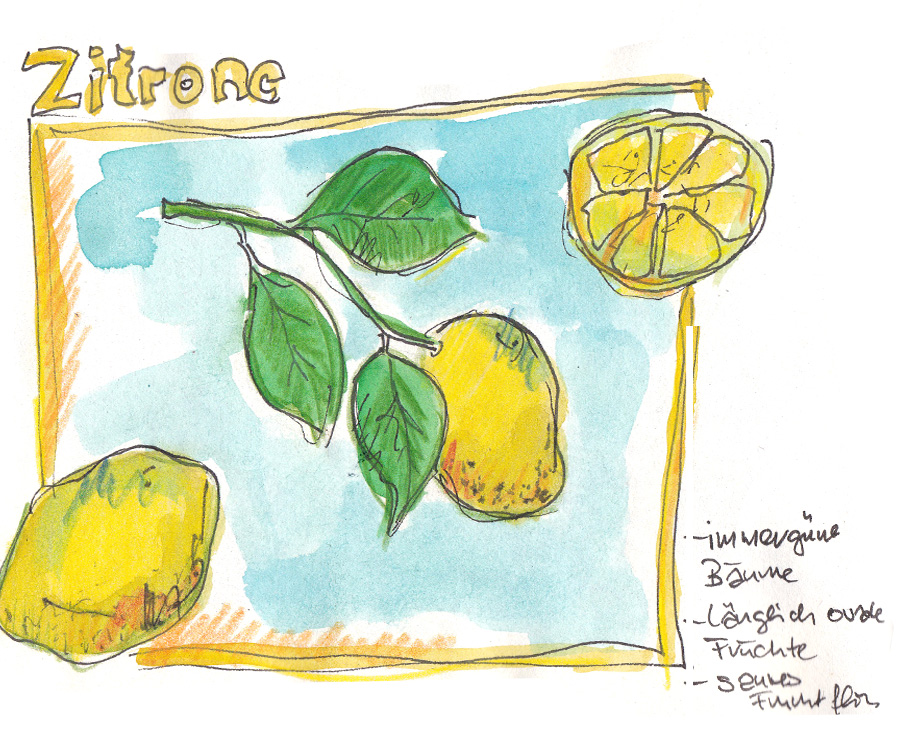 Zitrone
- immergüne
Bäume
- Länglich ovale
Früchte
- saures
Frucht